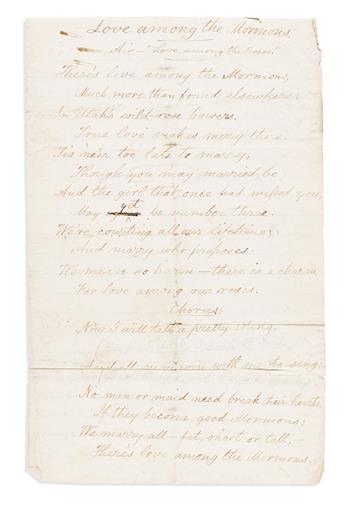 Love among the Mormons,
Air — "Love among the Roses."
There's love among the Mormons,
Much more than found elsewhere:
In Utah's wild-rose bowers.
True love makes merry there.
Tis ne'er too late to marry,
Though you may married be
And the girl that once had missed you,
May yet be number three.
We're courting all our lifetime;
And marry who proposes
We mean no harm — there is a charm
For love among our roses.
Chorus:
Now I will tell a pretty thing.
And all may with me sing:
No man or maid need break their hearts,
If they become good Mormons:
We marry all — fat, short or tall, —
There's love among the Mormons.